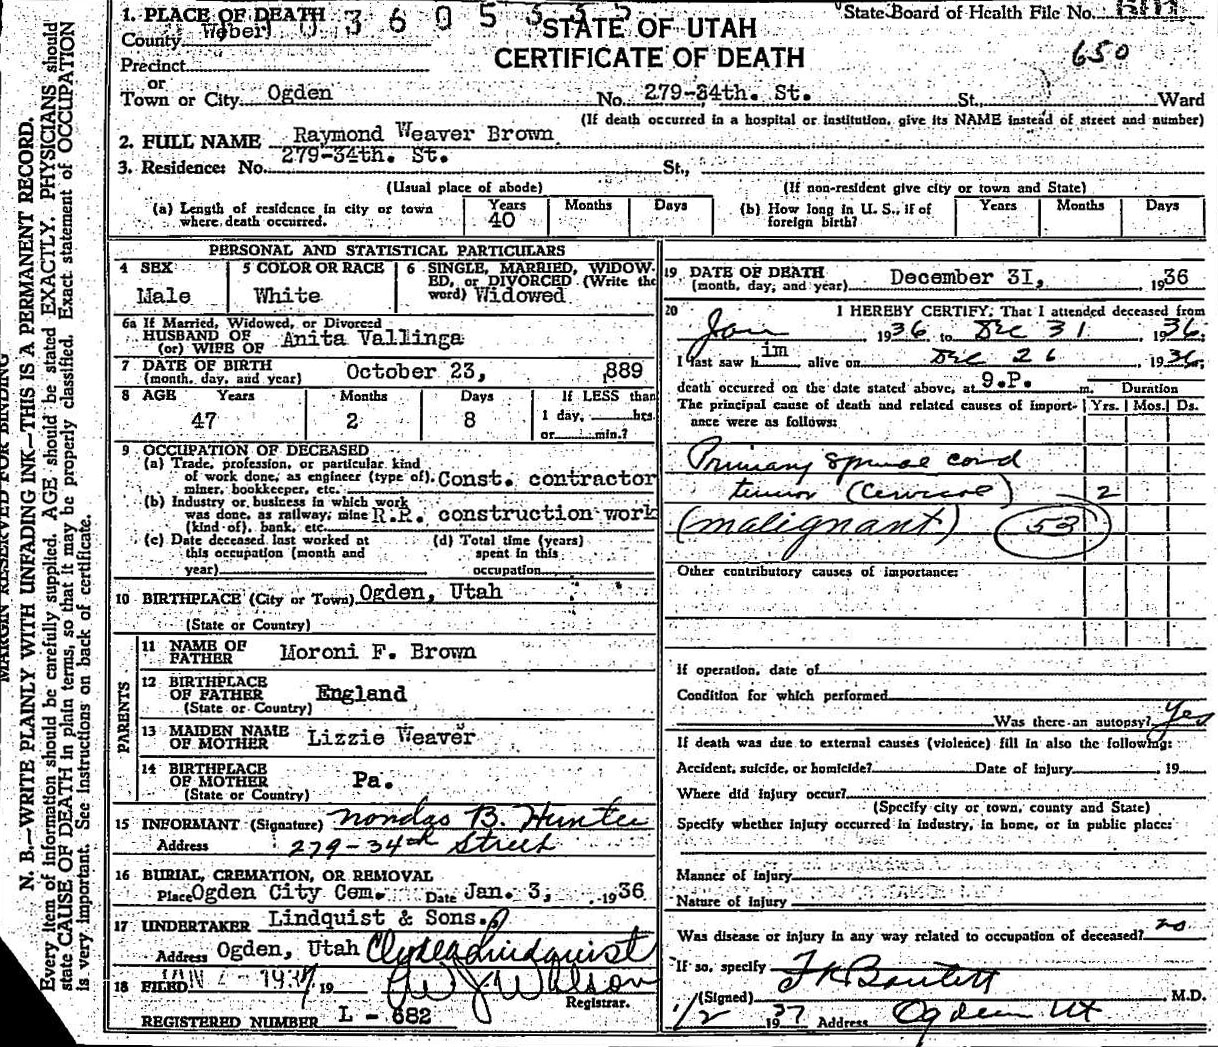 1. PLACE OF DEATH 0 3 6 0 5
County Weber
Precinct
or
Town or City Ogden
STATE OF UTAH
CERTIFICATE OF DEATH
State Board of Health File No.
650
No. 279-34th. St. St. Ward
(If death occurred in a hospital or institution, give its NAME instead of street and number)
2. FULL NAME Raymond Weaver Brown
3. Residence: No. 279-34th. St. St.,
(Usual place of abode) (If non-resident give city or town and State)
(a) Length of residence in city or town where death occurred. Years 40 Months Days
(b) How long in U. S., if of foreign birth? Years Months Days
PERSONAL AND STATISTICAL PARTICULARS
4 SEX Male
5 COLOR OR RACE White
6 SINGLE, MARRIED, WIDOW-
ED, or DIVORCED (Write the
word) Widowed
6a If Married, Widowed, or Divorced
HUSBAND OF Anita Vallinga
(or) WIFE OF
7 DATE OF BIRTH October 23, 889
(month, day, and year)
8 AGE Years Months Days If LESS than
47 2 8 1 day, hrs.
or min.?
9 OCCUPATION OF DECEASED
(a) Trade, profession, or particular kind
of work done, as engineer (type of). Const. contractor
miner, bookkeeper, etc.
(b) Industry or business in which work
was done, as railway; mine R.R. construction work
(kind of), bank, etc.
(c) Date deceased last worked at
this occupation (month and
year)
(d) Total time (years)
spent in this
occupation
10 BIRTHPLACE (City or Town) Ogden, Utah
(State or Country)
PARENTS
11 NAME OF
FATHER Moroni F. Brown
12 BIRTHPLACE
OF FATHER England
(State or Country)
13 MAIDEN NAME
OF MOTHER Lizzie Weaver
14 BIRTHPLACE
OF MOTHER Pa.
(State or Country)
15 INFORMANT (Signature) Nondas B. Hunter
Address 279-34th Street
16 BURIAL, CREMATION, OR REMOVAL
Place Ogden City Cem. Date Jan. 3, 1936
17 UNDERTAKER Lindquist & Sons.
Address Ogden, Utah Clyde Lindquist
18 FILED JAN 2 - 1937 19
Registrar.
REGISTERED NUMBER L - 682
19 DATE OF DEATH December 31, 1936
(month, day, and year)
20 I HEREBY CERTIFY, That I attended deceased from
Jan 1936 to Dec 31, 1936.
I last saw him alive on Dec 26, 1936,
death occurred on the date stated above, at 9.P. m. Duration
The principal cause of death and related causes of import- Yrs. Mos. Ds.
ance were as follows:
Primary spinal cord
tumor (cervical) 2
(malignant) 53
Other contributory causes of importance:
If operation, date of
Condition for which performed
Was there an autopsy? Yes
If death was due to external causes (violence) fill in also the following:
Accident, suicide, or homicide? Date of injury , 19
Where did injury occur?
(Specify city or town, county and State)
Specify whether injury occurred in industry, in home, or in public place:
Manner of injury
Nature of injury
Was disease or injury in any way related to occupation of deceased? no
If so, specify
(Signed) F K Bartlett M.D.
1/2 1937 Address Ogden Ut
MARGIN RESERVED FOR BINDING
N. B.—WRITE PLAINLY WITH UNFADING INK—THIS IS A PERMANENT RECORD.
Every item of information should be carefully supplied. AGE should be stated EXACTLY. PHYSICIANS should
state CAUSE OF DEATH in plain terms, so that it may be properly classified. Exact statement of OCCUPATION
is very important. See instructions on back of certificate.